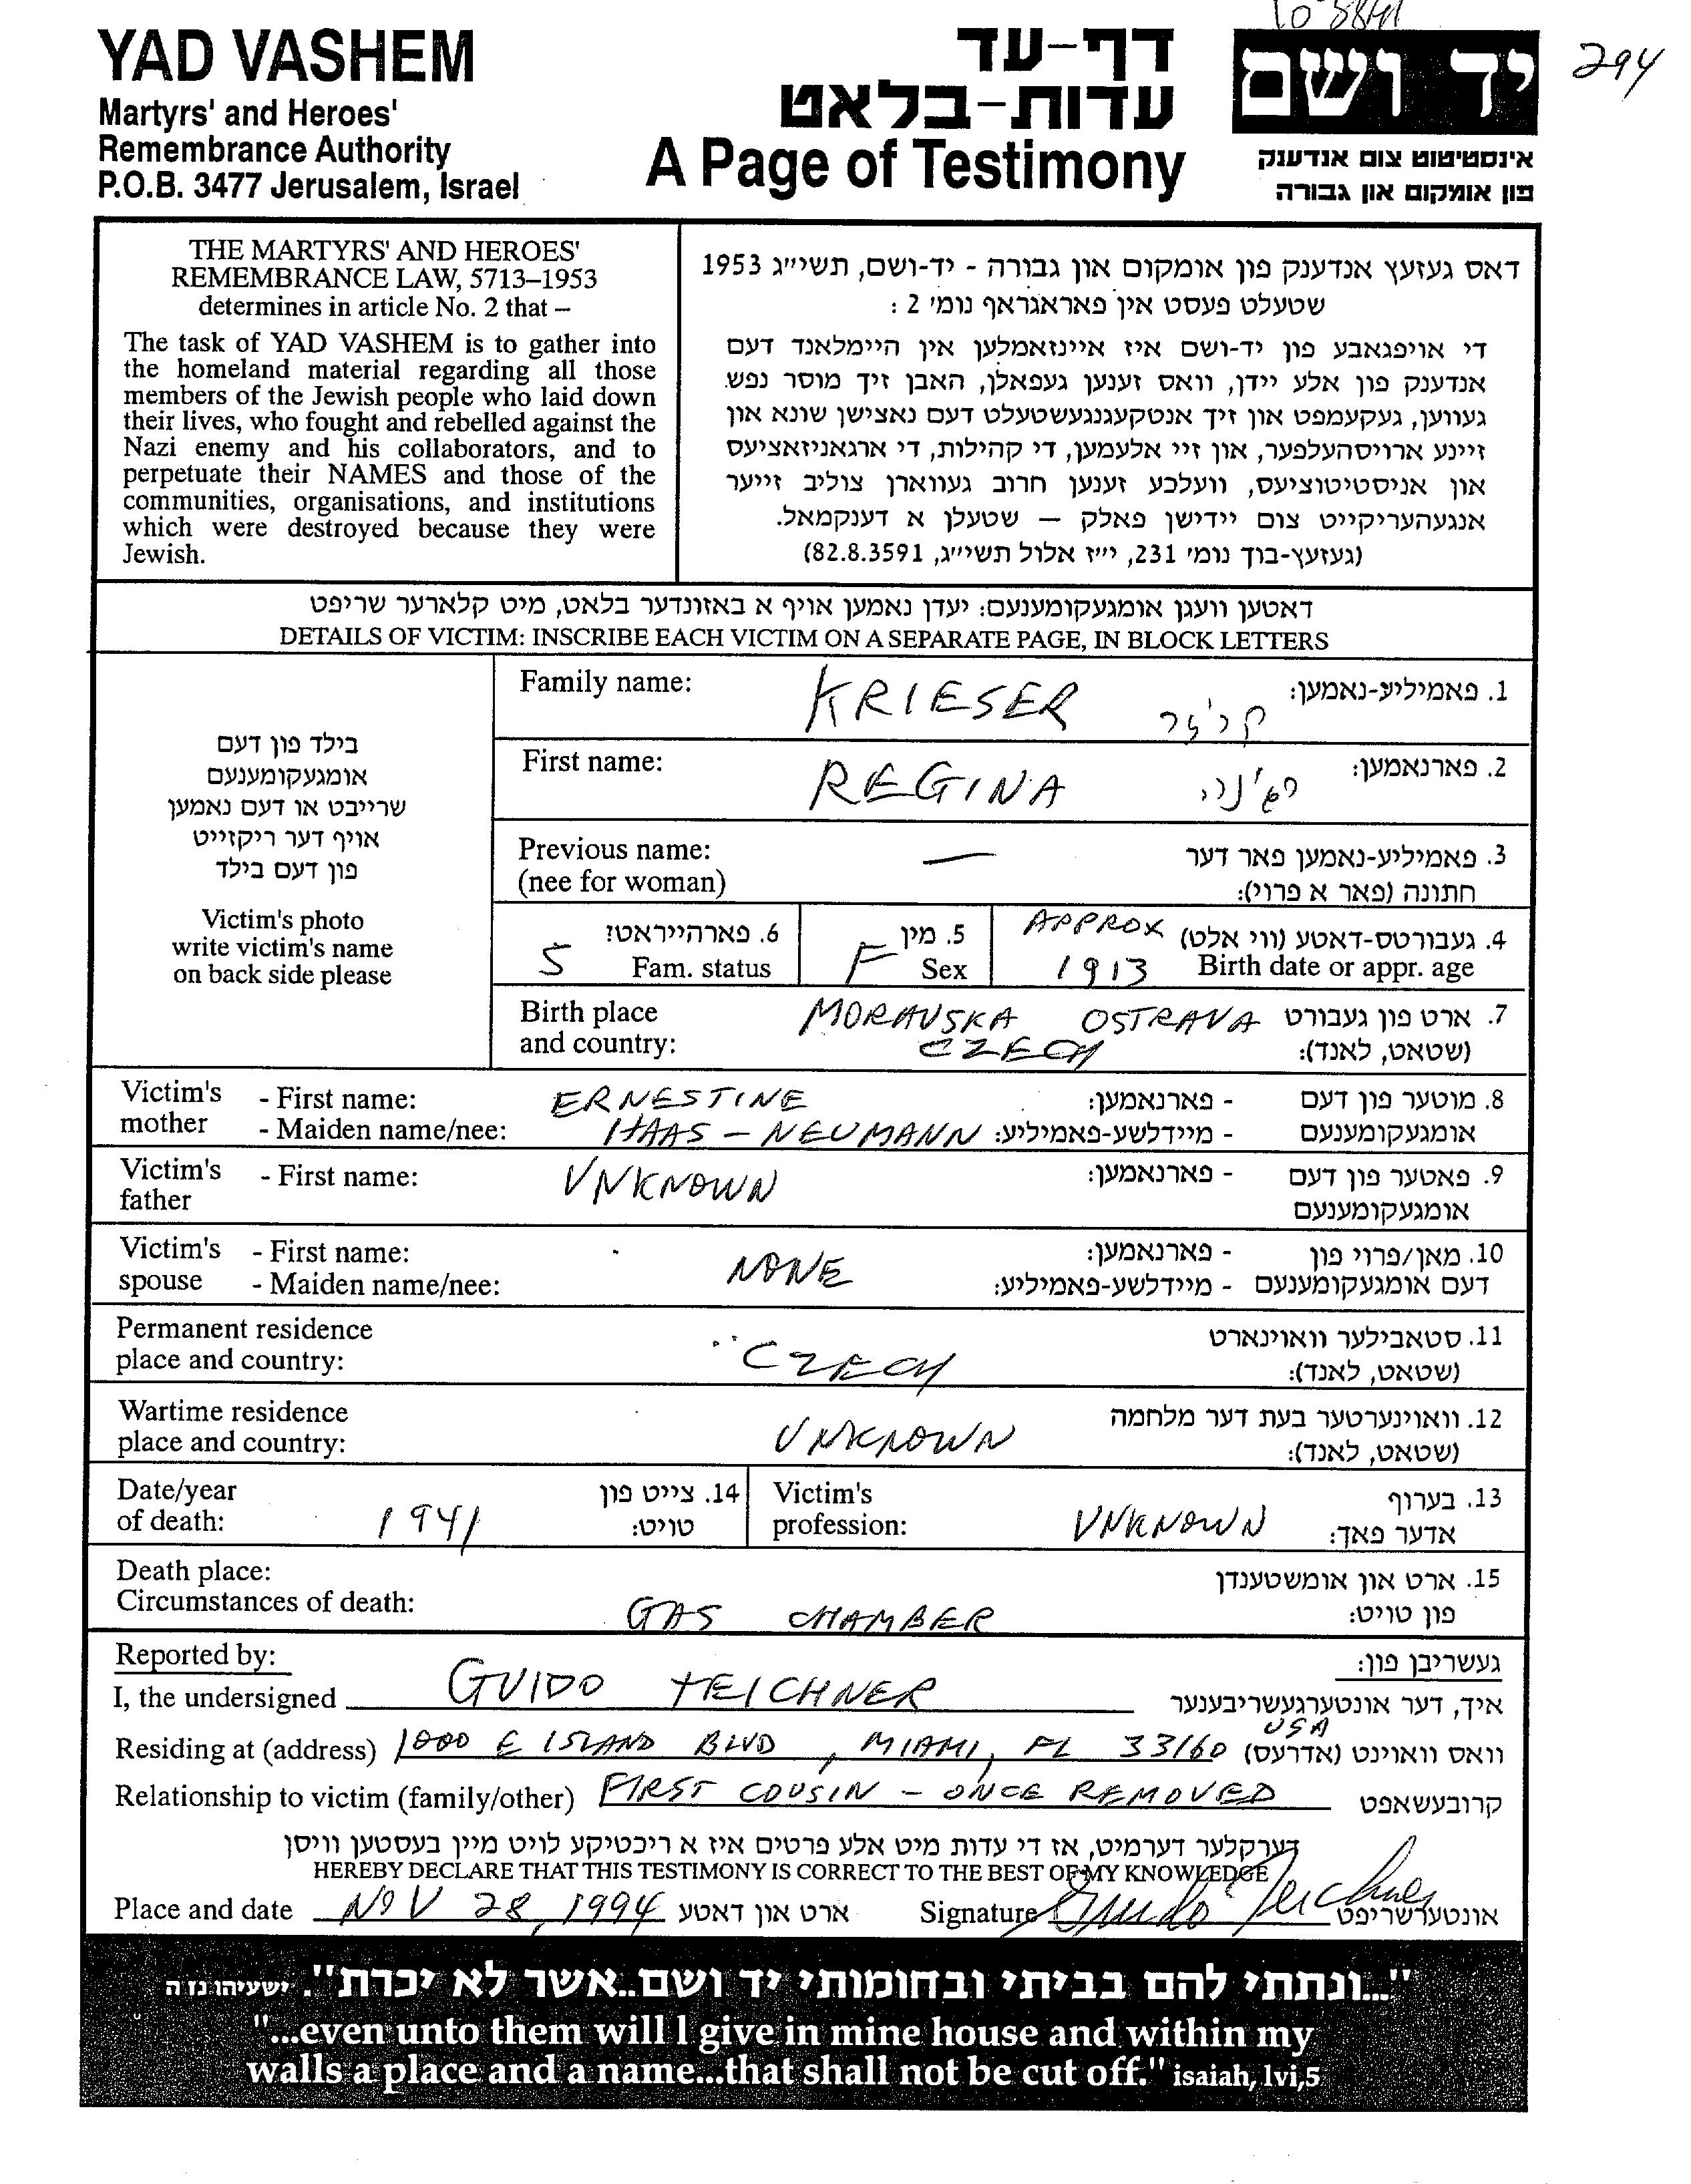 YAD VASHEM
Martyrs' and Heroes'
Remembrance Authority
P.O.B. 3477 Jerusalem, Israel
דף-עד
עדות-בלאט
A Page of Testimony
294
יד ושם
אינסטיטוט צום אנדענק
פון אומקום און גבורה
THE MARTYRS' AND HEROES'
REMEMBRANCE LAW, 5713–1953
determines in article No. 2 that –
The task of YAD VASHEM is to gather into
the homeland material regarding all those
members of the Jewish people who laid down
their lives, who fought and rebelled against the
Nazi enemy and his collaborators, and to
perpetuate their NAMES and those of the
communities, organisations, and institutions
which were destroyed because they were
Jewish.
דאס געזעץ אנדענק פון אומקום און גבורה - יד-ושם, תשי״ג 1953
שטעלט פעסט אין פאראגראף נומ׳ 2 :
די אויפגאבע פון יד-ושם איז איינזאמלען אין היימלאנד דעם
אנדענק פון אלע יידן, וואס זענען געפאלן, האבן זיך מוסר נפש
געווען, געקעמפט און זיך אנטקעגנגעשטעלט דעם נאצישן שונא און
זיינע ארויסהעלפער, און זיי אלעמען, די קהילות, די ארגאניזאציעס
און אניסטיטוציעס, וועלכע זענען חרוב געווארן צוליב זייער
אנגעהעריקייט צום יידישן פאלק — שטעלן א דענקמאל.
(געזעץ-בוך נומ׳ 231, י״ז אלול תשי״ג, 82.8.3591)
דאטען וועגן אומגעקומענעם: יעדן נאמען אויף א באזונדער בלאט, מיט קלארער שריפט
DETAILS OF VICTIM: INSCRIBE EACH VICTIM ON A SEPARATE PAGE, IN BLOCK LETTERS
בילד פון דעם
אומגעקומענעם
שרייבט או דעם נאמען
אויף דער ריקזייט
פון דעם בילד
Victim's photo
write victim's name
on back side please
Family name: KRIESER קריזר 1. פאמיליע-נאמען:
First name: REGINA רג'נה 2. פארנאמען:
Previous name: — 3. פאמיליע-נאמען פאר דער
(nee for woman) חתונה (פאר א פרוי):
6. פארהייראט? 5. מין APPROX 4. געבורטס-דאטע (ווי אלט)
S Fam. status F Sex 1913 Birth date or appr. age
Birth place MORAVSKA OSTRAVA 7. ארט פון געבורט
and country: CZECH (שטאט, לאנד):
Victim's - First name: ERNESTINE - פארנאמען: 8. מוטער פון דעם
mother - Maiden name/nee: HAAS – NEUMANN - מיידלשע-פאמיליע: אומגעקומענעם
Victim's - First name: UNKNOWN - פארנאמען: 9. פאטער פון דעם
father אומגעקומענעם
Victim's - First name: NONE - פארנאמען: 10. מאן/פרוי פון
spouse - Maiden name/nee: - מיידלשע-פאמיליע: דעם אומגעקומענעם
Permanent residence CZECH 11. סטאבילער וואוינארט
place and country: (שטאט, לאנד):
Wartime residence UNKNOWN 12. וואוינערטער בעת דער מלחמה
place and country: (שטאט, לאנד):
Date/year 1941 14. צייט פון Victim's UNKNOWN 13. בערוף
of death: טויט: profession: אדער פאך:
Death place: 15. ארט און אומשטענדן
Circumstances of death: GAS CHAMBER פון טויט:
Reported by: געשריבן פון:
I, the undersigned GUIDO TEICHNER איך, דער אונטערגעשריבענער
USA
Residing at (address) 1000 E ISLAND BLVD, MIAMI, FL 33160 וואס וואוינט (אדרעס)
Relationship to victim (family/other) FIRST COUSIN – ONCE REMOVED קרובעשאפט
דערקלער דערמיט, אז די עדות מיט אלע פרטים איז א ריכטיקע לויט מיין בעסטען וויסן
HEREBY DECLARE THAT THIS TESTIMONY IS CORRECT TO THE BEST OF MY KNOWLEDGE
Place and date NOV 28, 1994 ארט און דאטע Signature Guido Teichner אונטערשריפט
"...ונתתי להם בביתי ובחומותי יד ושם..אשר לא יכרת". ישעיהו נו ה
"...even unto them will I give in mine house and within my
walls a place and a name...that shall not be cut off." isaiah, lvi,5